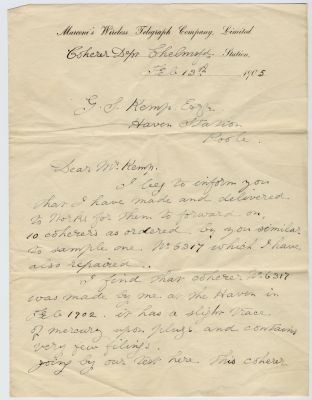 Marconi's Wireless Telegraph Company, Limited
Coherer Dept Chelmsford Station.
Feb 13th 1905
G. S. Kemp Esqr
Haven Station
Poole.
Dear Mr Kemp.
I beg to inform you
that I have made and delivered
to Works for them to forward on
10 coherers as ordered by you similar
to sample one. No 6317 which I have
also repaired.
I find that coherer No 6317
was made by me at the Haven in
Feb 1902. it has a slight trace
of mercury upon plugs and contains
very few filings.
going by our test here. This coherer